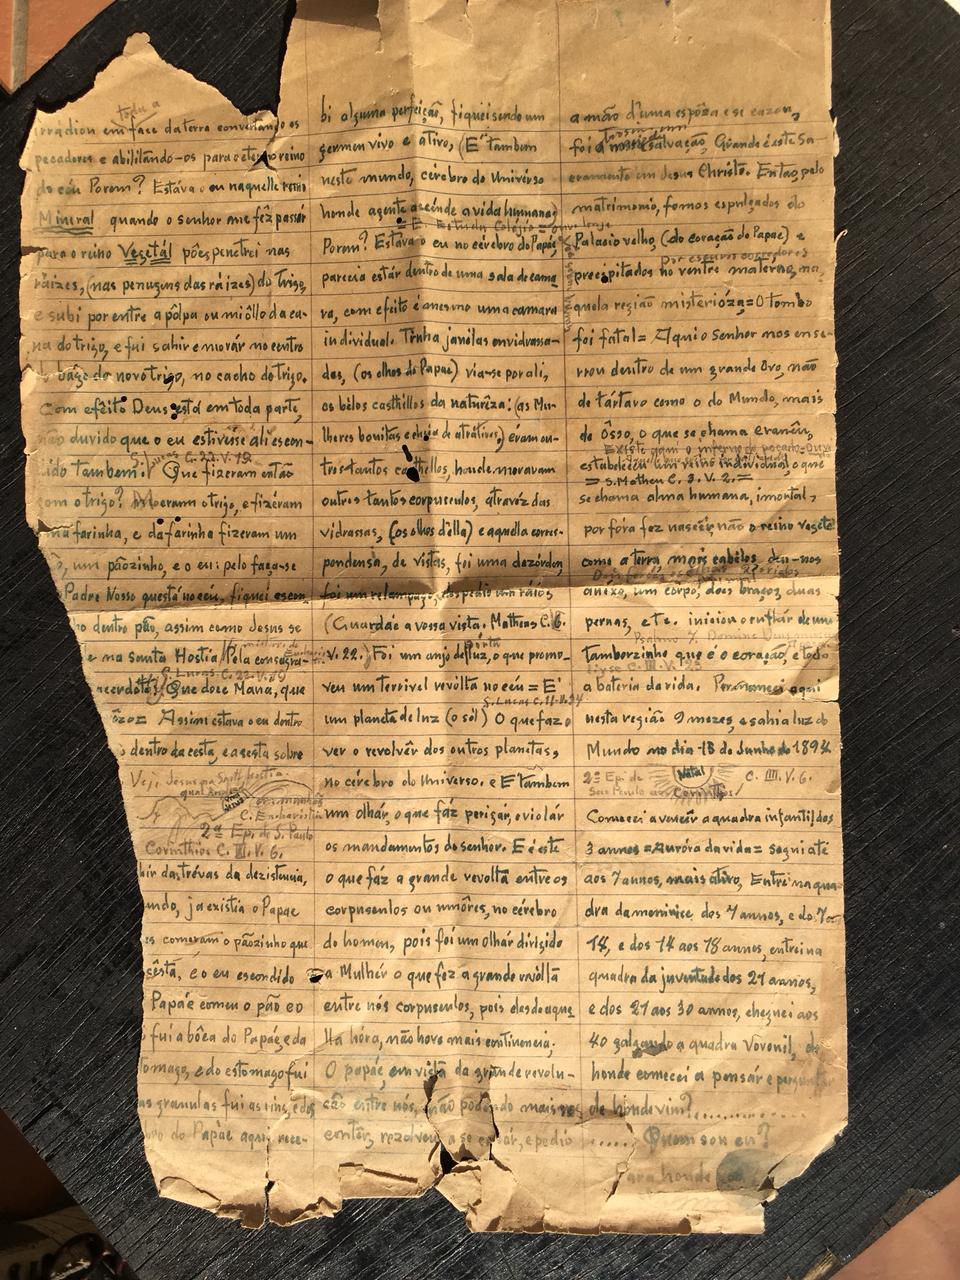 toda a
irrádiou em face da terra convertendo os
pecadores e abilitando-os para o eterno reino
do céu Porem? Estáva o eu naquelle reino
Mineral quando o senhor me fêz passár
para o reino Vegetál pôes penetrei nas
ráizes, (nas penugens das ráizes) do trigo,
e subi por entre a pôlpa ou miôllo da ca-
na do trigo, e fui sahir e morár no centro
bágo do novo trigo, no cacho do trigo.
Com efêito Deus está em toda parte,
não duvido que o eu estivésse áli escon-
S. Lucas C. 22. V. 19
dido tambem: Que fizeram então
com o trigo? Moeram o trigo, e fizéram
na farinha, e da farinha fizeram um
um pãozinho, e o eu: pelo faça-se
Padre Nosso questá no ceu, fiquei escon
dentro pão, assim como Jesus se
na santa Hostia Pela consagra-
S. Lucas C. 22. V. 19
Que doce Mana, que
Assim estava o eu dentro
dentro da cesta, e a sesta sobre
Vej. Jesus na Santa Hostia
C. Eucharistia
2ª Epi. de S. Paulo
Corinthios C. III. V. 6.
das trévas da dezistencia,
ja existia o Papae
comeram o pãozinho que
césta, e o eu escondido
Papáe comeu o pão e o
fui a bôca do Papáe, e da
e do estomago fui
as granulas fui as rins, e dos
do Papáe aqui, rece-
bi alguma perfeição, fiquei sendo um
germen vivo e ativo, (E' tambem
neste mundo, cérebro do Univérso
honde agente acénde a vida humana)
Porem? Estáva o eu no cérebro do Papáe,
parecia estár dentro de uma sala de cama
ra, com efeito é mesmo uma camara
individual. Tinha janélas envidrassa-
das, (os olhos do Papae) via-se por ali,
os bélos casthillos da naturêza: (as Mu-
lheres bonitas e cheia de atrátives) eram ou-
tros tantos casthellos, honde moravam
outros tantos corpusculos, atravéz das
vidrassas, (os olhos d'ella) e aquella corres-
pondensa, de vistas, foi uma dezórden,
foi um relampago, despedio um ráios,
(Guardáe a vossa vista. Matheus C. 6.
V. 22.) Foi um anjo de luz, o que promo-
veu um Terrivel revolta no céu = E'
S. Lucas C. 11. V. 34
um planéta de luz (o sól) O que fáz o
ver o revolvêr dos outros planêtas,
no cérebro do Universo. e E' tambem
um olhár, o que fáz perigár, e violár
os mandamentos do senhor. E é éste
o que fáz a grande revolta entre os
corpusculos ou umôres, no cérebro
do homen, pois foi um olhár dirigido
a Mulhér o que fez a grande revólta
entre nós corpusculos, pois desde aque
lla hóra, não hove mais continencia.
O papáe, em vista da grande revolu-
cão entre nós, não podendo mais nos
contêr, rezolveu a se cazár, e pedio
a mão d'uma espôza e se cazou,
foi a nossa salvação, Grande é éste Sa
cramento em Jesus Christo. Entao, pelo
matrimonio, fomos espulçados do
Palacio velho, (do coração do Papae) e
por escuros corredores
precipitados no ventre materno, na
quela região misterióza = O tombo
foi fatal = Aqui o Senhor nos en se-
rrou dentro de um grande Ovo, não
de tártaro como o do Mundo, mais
de ôsso, o que se chama craneu,
estabeleceu um reino individual, o que
= S. Matheu C. 3. V. 2. =
se chama alma humana, imortal,
por fóra fez nascêr, não o reino vegete
como a terra mais cabêlos, deu-nos
anexo, um corpo, dois braços, duas
pernas, e te. iniciou o entrár de um
Tamborzinho que é o coração, e todo
a bateria da vida. Permaneci aqui
nesta região 9 mezes, e sahia luz do
Mundo no dia 13 de Junho de 1894
2ª Epi de Natal C. III. V. 6.
Sau Paulo aos Corinthios
Comecei a vencêr a quadra infantil dos
3 annos = Auróra da vida = segui até
aos 7 annos, mais ativo, Entrei na qua-
dra da meninice, dos 7 annos, e do 7 a-
14, e dos 14 aos 18 annos, entrei na
quadra da juventude dos 21 annos,
e dos 21 aos 30 annos, cheguei aos
40 galgando a quadra Vovonil, de
honde comecei a pensár e perguntar
de honde vim?............
...... Quem sou eu?
Para honde